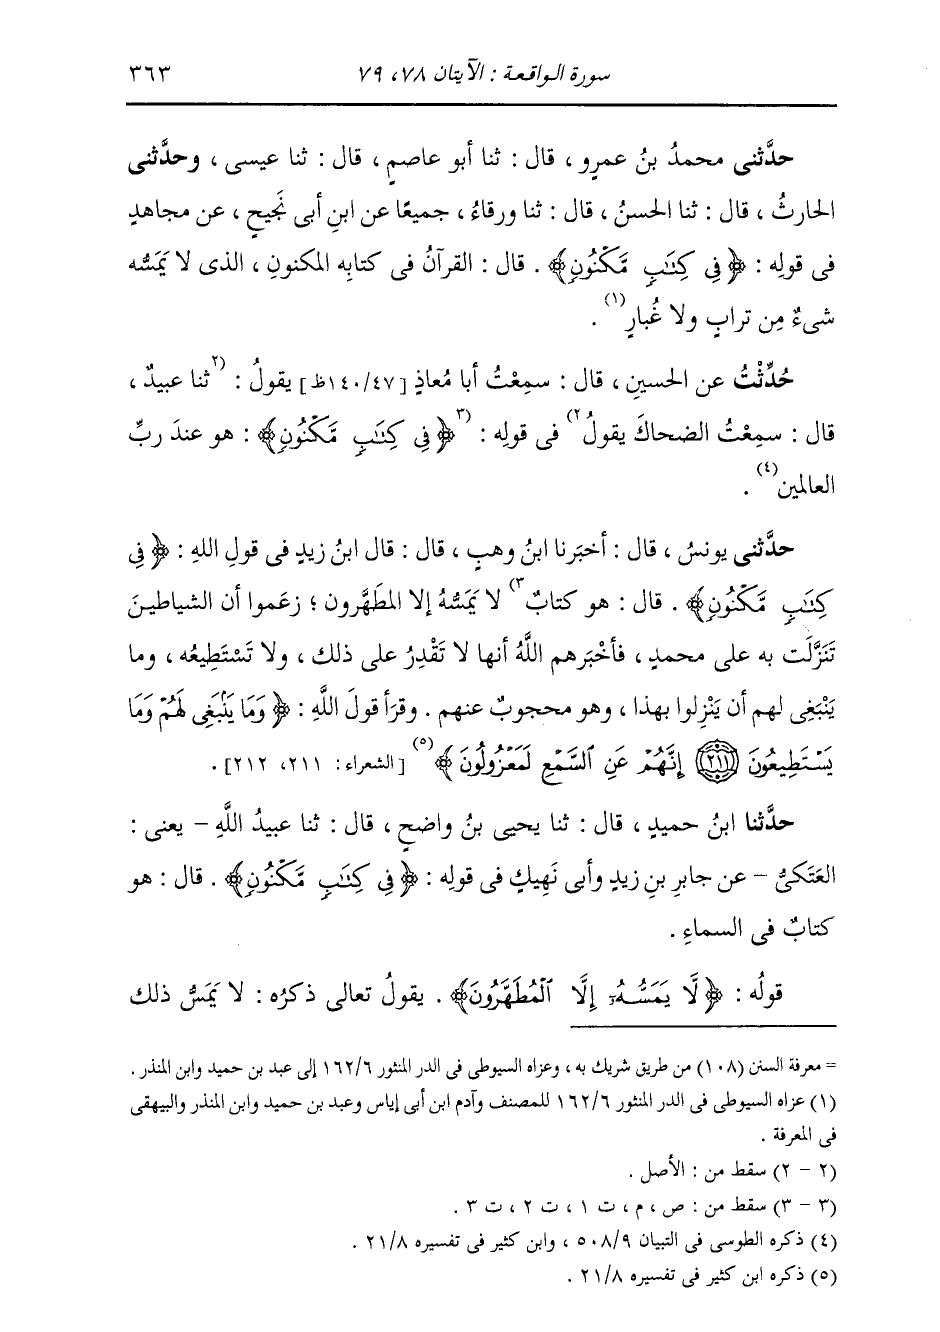 سورة الواقعة : الآيتان ٧٨، ٧٩ ٣٦٣
حدَّثنى محمدُ بنُ عمرٍو ، قال : ثنا أبو عاصمٍ ، قال : ثنا عيسى ، وحدَّثنى
الحارثُ ، قال : ثنا الحسنُ ، قال : ثنا ورقاءُ ، جميعًا عن ابنِ أبى نَجيحٍ ، عن مجاهدٍ
فى قولِه : ﴿فِي كِتَٰبٍ مَّكْنُونٍ﴾ . قال : القرآنُ فى كتابِه المكنونِ ، الذى لا يَمَسُّه
شىءٌ مِن ترابٍ ولا غُبارٍ(١) .
حُدِّثْتُ عن الحسينِ ، قال : سمِعْتُ أبا مُعاذٍ [١٤٠/٤٧ظ] يقولُ : (٢ثنا عبيدٌ ،
قال : سمِعْتُ الضحاكَ يقولُ٢) فى قولِه : (٣﴿فِي كِتَٰبٍ مَّكْنُونٍ﴾ : هو عندَ ربِّ
العالمين(٤) .
حدَّثنى يونسُ ، قال : أخبَرنا ابنُ وهبٍ ، قال : قال ابنُ زيدٍ فى قولِ اللهِ : ﴿فِي
كِتَٰبٍ مَّكْنُونٍ﴾ . قال : هو كتابٌ٣) لا يَمَسُّهُ إلا المطَهَّرون ؛ زعَموا أن الشياطينَ
تَنَزَّلَت به على محمدٍ ، فأخْبَرهم اللَّهُ أنها لا تَقْدِرُ على ذلك ، ولا تَسْتَطِيعُه ، وما
يَنْبَغِى لهم أن يَنْزِلوا بهذا ، وهو محجوبٌ عنهم . وقرَأ قولَ اللَّهِ : ﴿وَمَا يَنۢبَغِى لَهُمْ وَمَا
يَسْتَطِيعُونَ ﴿٢١١﴾ إِنَّهُمْ عَنِ ٱلسَّمْعِ لَمَعْزُولُونَ﴾(٥) [الشعراء: ٢١١، ٢١٢] .
حدَّثنا ابنُ حميدٍ ، قال : ثنا يحيى بنُ واضحٍ ، قال : ثنا عبيدُ اللَّهِ – يعنى :
العَتَكىُّ – عن جابرِ بنِ زيدٍ وأبى نَهِيكٍ فى قولِه : ﴿فِي كِتَٰبٍ مَّكْنُونٍ﴾ . قال : هو
كتابٌ فى السماءِ .
قولُه : ﴿لَّا يَمَسُّهُۥٓ إِلَّا ٱلْمُطَهَّرُونَ﴾ . يقولُ تعالى ذكرُه : لا يَمَسُّ ذلك
= معرفة السنن (١٠٨) من طريق شريك به ، وعزاه السيوطى فى الدر المنثور ١٦٢/٦ إلى عبد بن حميد وابن المنذر .
(١) عزاه السيوطى فى الدر المنثور ١٦٢/٦ للمصنف وآدم ابن أبى إياس وعبد بن حميد وابن المنذر والبيهقى
فى المعرفة .
(٢ – ٢) سقط من : الأصل .
(٣ – ٣) سقط من : ص ، م ، ت ١ ، ت ٢ ، ت ٣ .
(٤) ذكره الطوسى فى التبيان ٥٠٨/٩ ، وابن كثير فى تفسيره ٢١/٨ .
(٥) ذكره ابن كثير فى تفسيره ٢١/٨ .